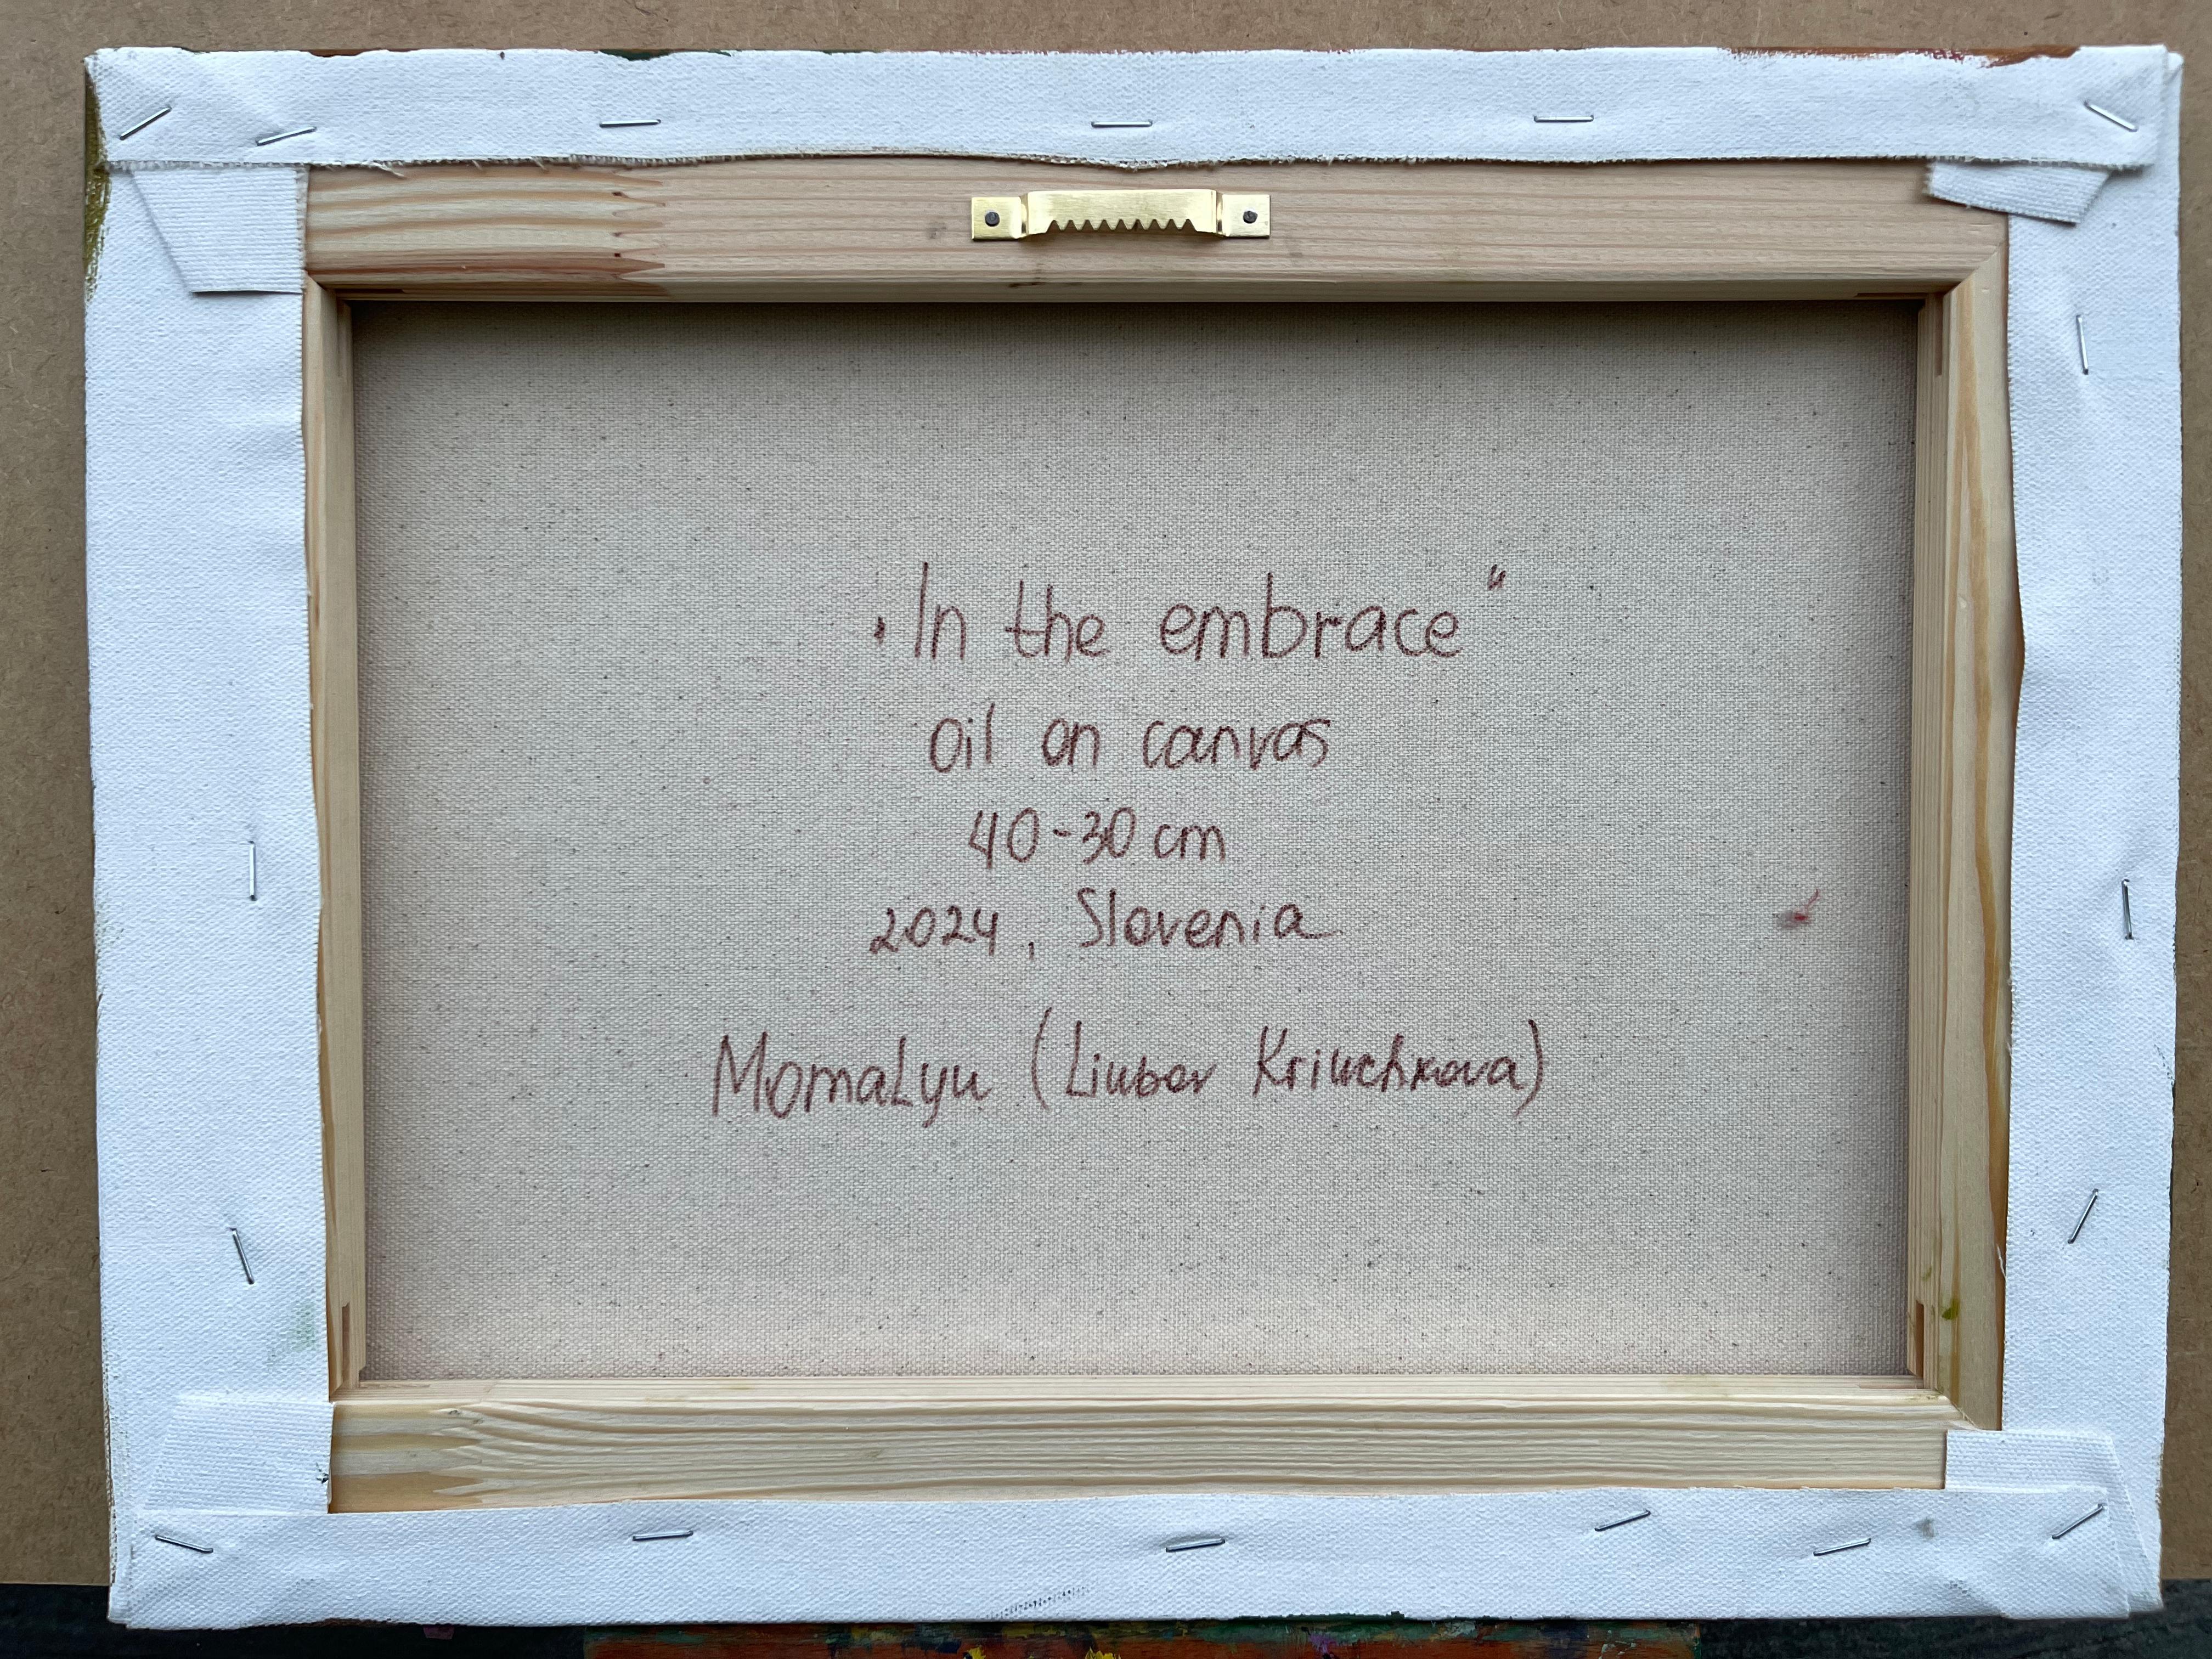 „In the embrace"
oil on canvas
40-30 cm
2024, Slovenia
MomaLyu (Liubov Kriuchkova)